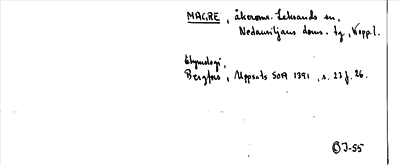 MAGRE, åkeromr. Leksands sn.
Nedansiljans doms. tg, Kopp. l.
Etymologi,
Bergfors, Uppsats SOÄ 1391, s. 23 f. 26.
J-55